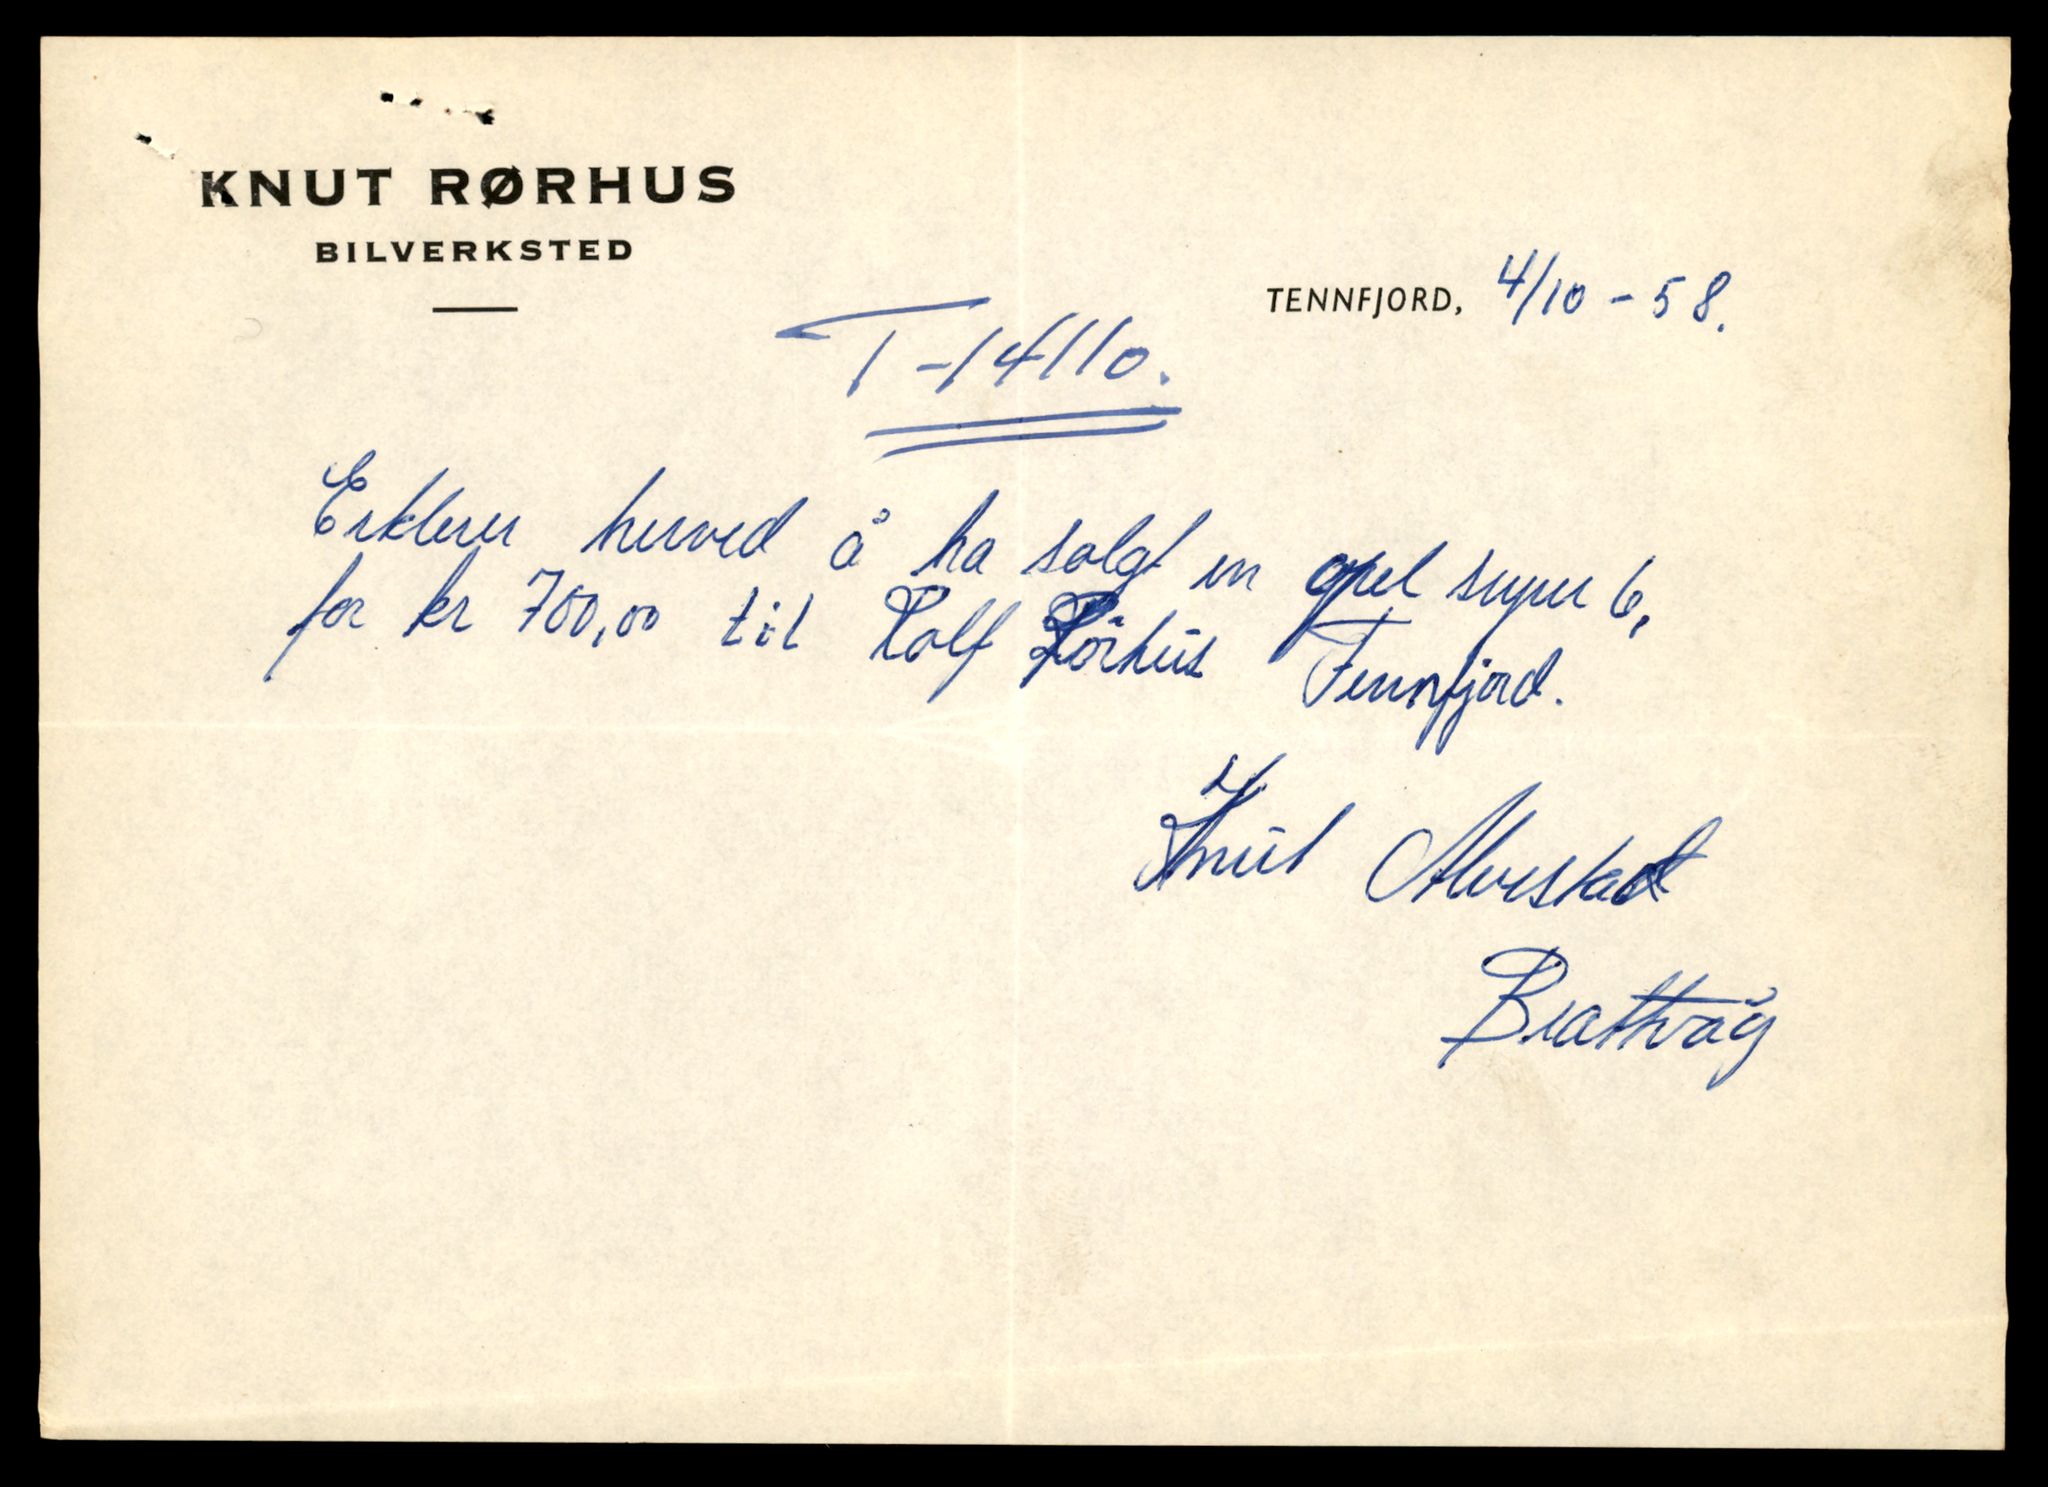 KNUT RØRHUS
BILVERKSTED
TENNFJORD, 4/10-58.
T-14110.
Erklerer herved å ha solgt en opel super 6,
for kr 700,00 til Rolf Rörhus Tennfjord.
Knut Alvestad
Brattvåg